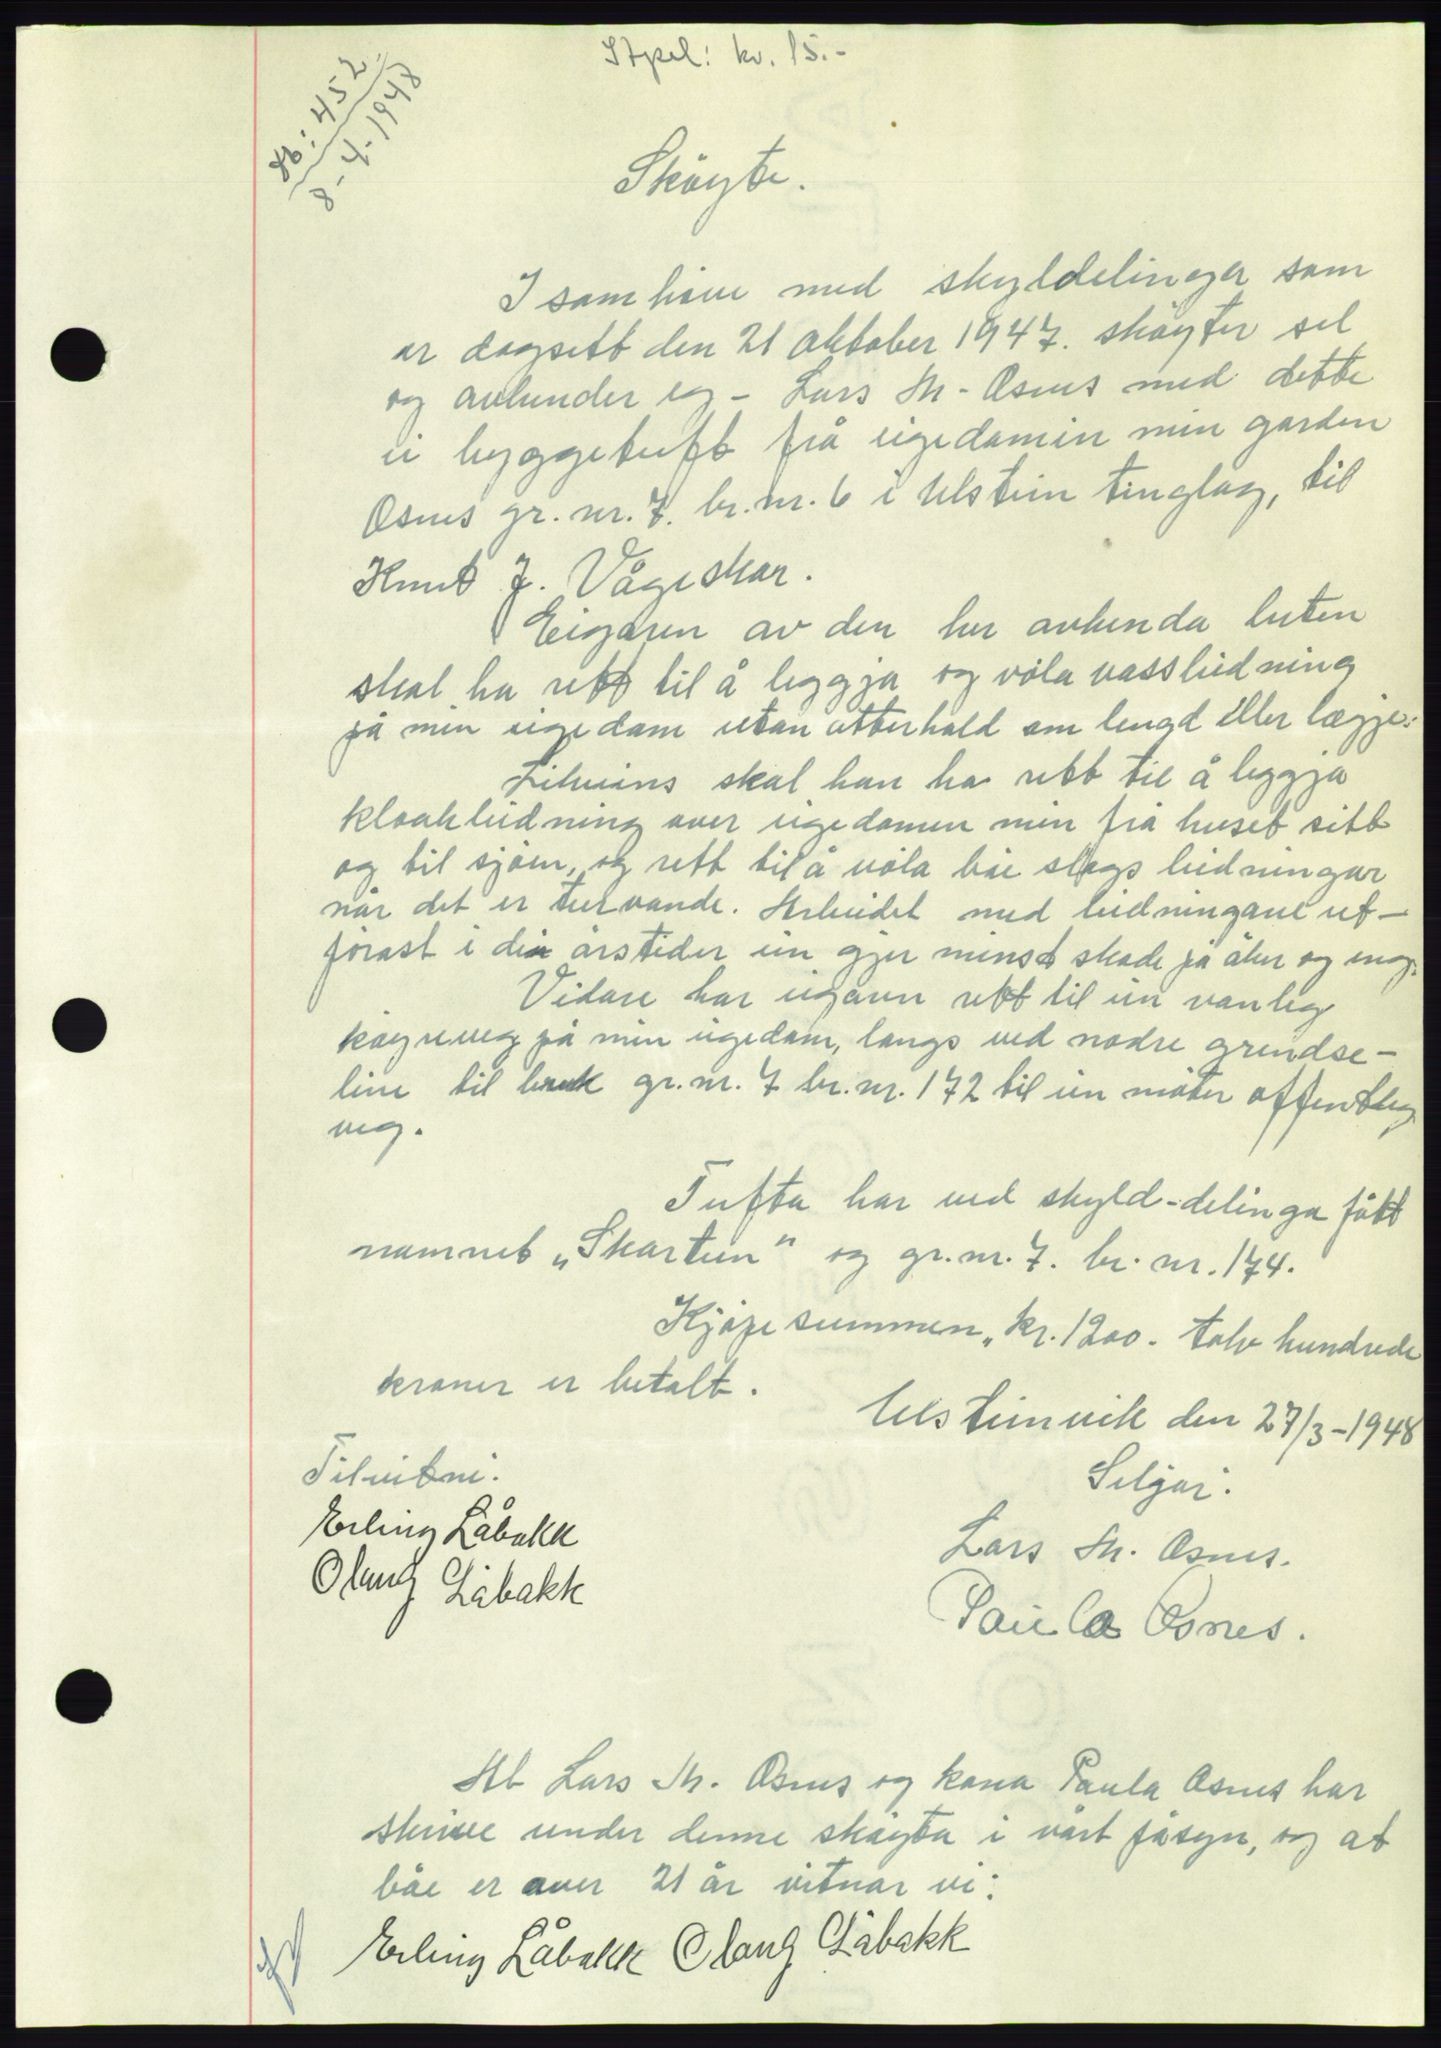 Stpel: kr. 15.-
Nb: 452
8-4-1948
Skøyte.
I samhøve med skyldelinger som
er dagsett den 21 oktober 1947. skøyter sel
og avhender eg - Lars M. Osnes med dette
ei byggetuft frå eigedomen min garden
Osnes gr. nr. 7. br. nr. 6 i Ulstein tinglag, til
Knut J. Vågeskar.
Eigaren av den her avhenda luten
skal ha rett til å leggja og vøla vassleidning
på min eigedom utan atterhald om lengd eller lægje.
Likeeins skal han ha rett til å leggja
kloakleidning over eigedomen min frå huset sitt
og til sjøen, og rett til å vøla båe slags leidningar
når det er turvande. Arbeidet med leidningane ut-
førast i dei årstider ein gjer minst skade på åker og eng.
Vidare har eigaren rett til ein vanleg
køyreveg på min eigedom, langs ved nodre grendse-
line til bruk gr. nr. 7 br. nr. 172 til ein møter offentleg
veg.
Tufta har ved skyld-delinga fått
namnet „Skartun" og gr. nr. 7. br. nr. 174.
Kjøpesummen, kr. 1200.- tolv hundrede
kroner er betalt.
Ulsteinvik den 27/3-1948
Tilvitne:
Seljar:
Erling Låbakk
Lars M. Osnes.
Olaug Låbakk
Paula Osnes.
At Lars M. Osnes og kona Paula Osnes har
skrive under denne skøyta i vårt påsyn, og at
båe er over 21 år vitnar vi:
Erling Låbakk Olaug Låbakk